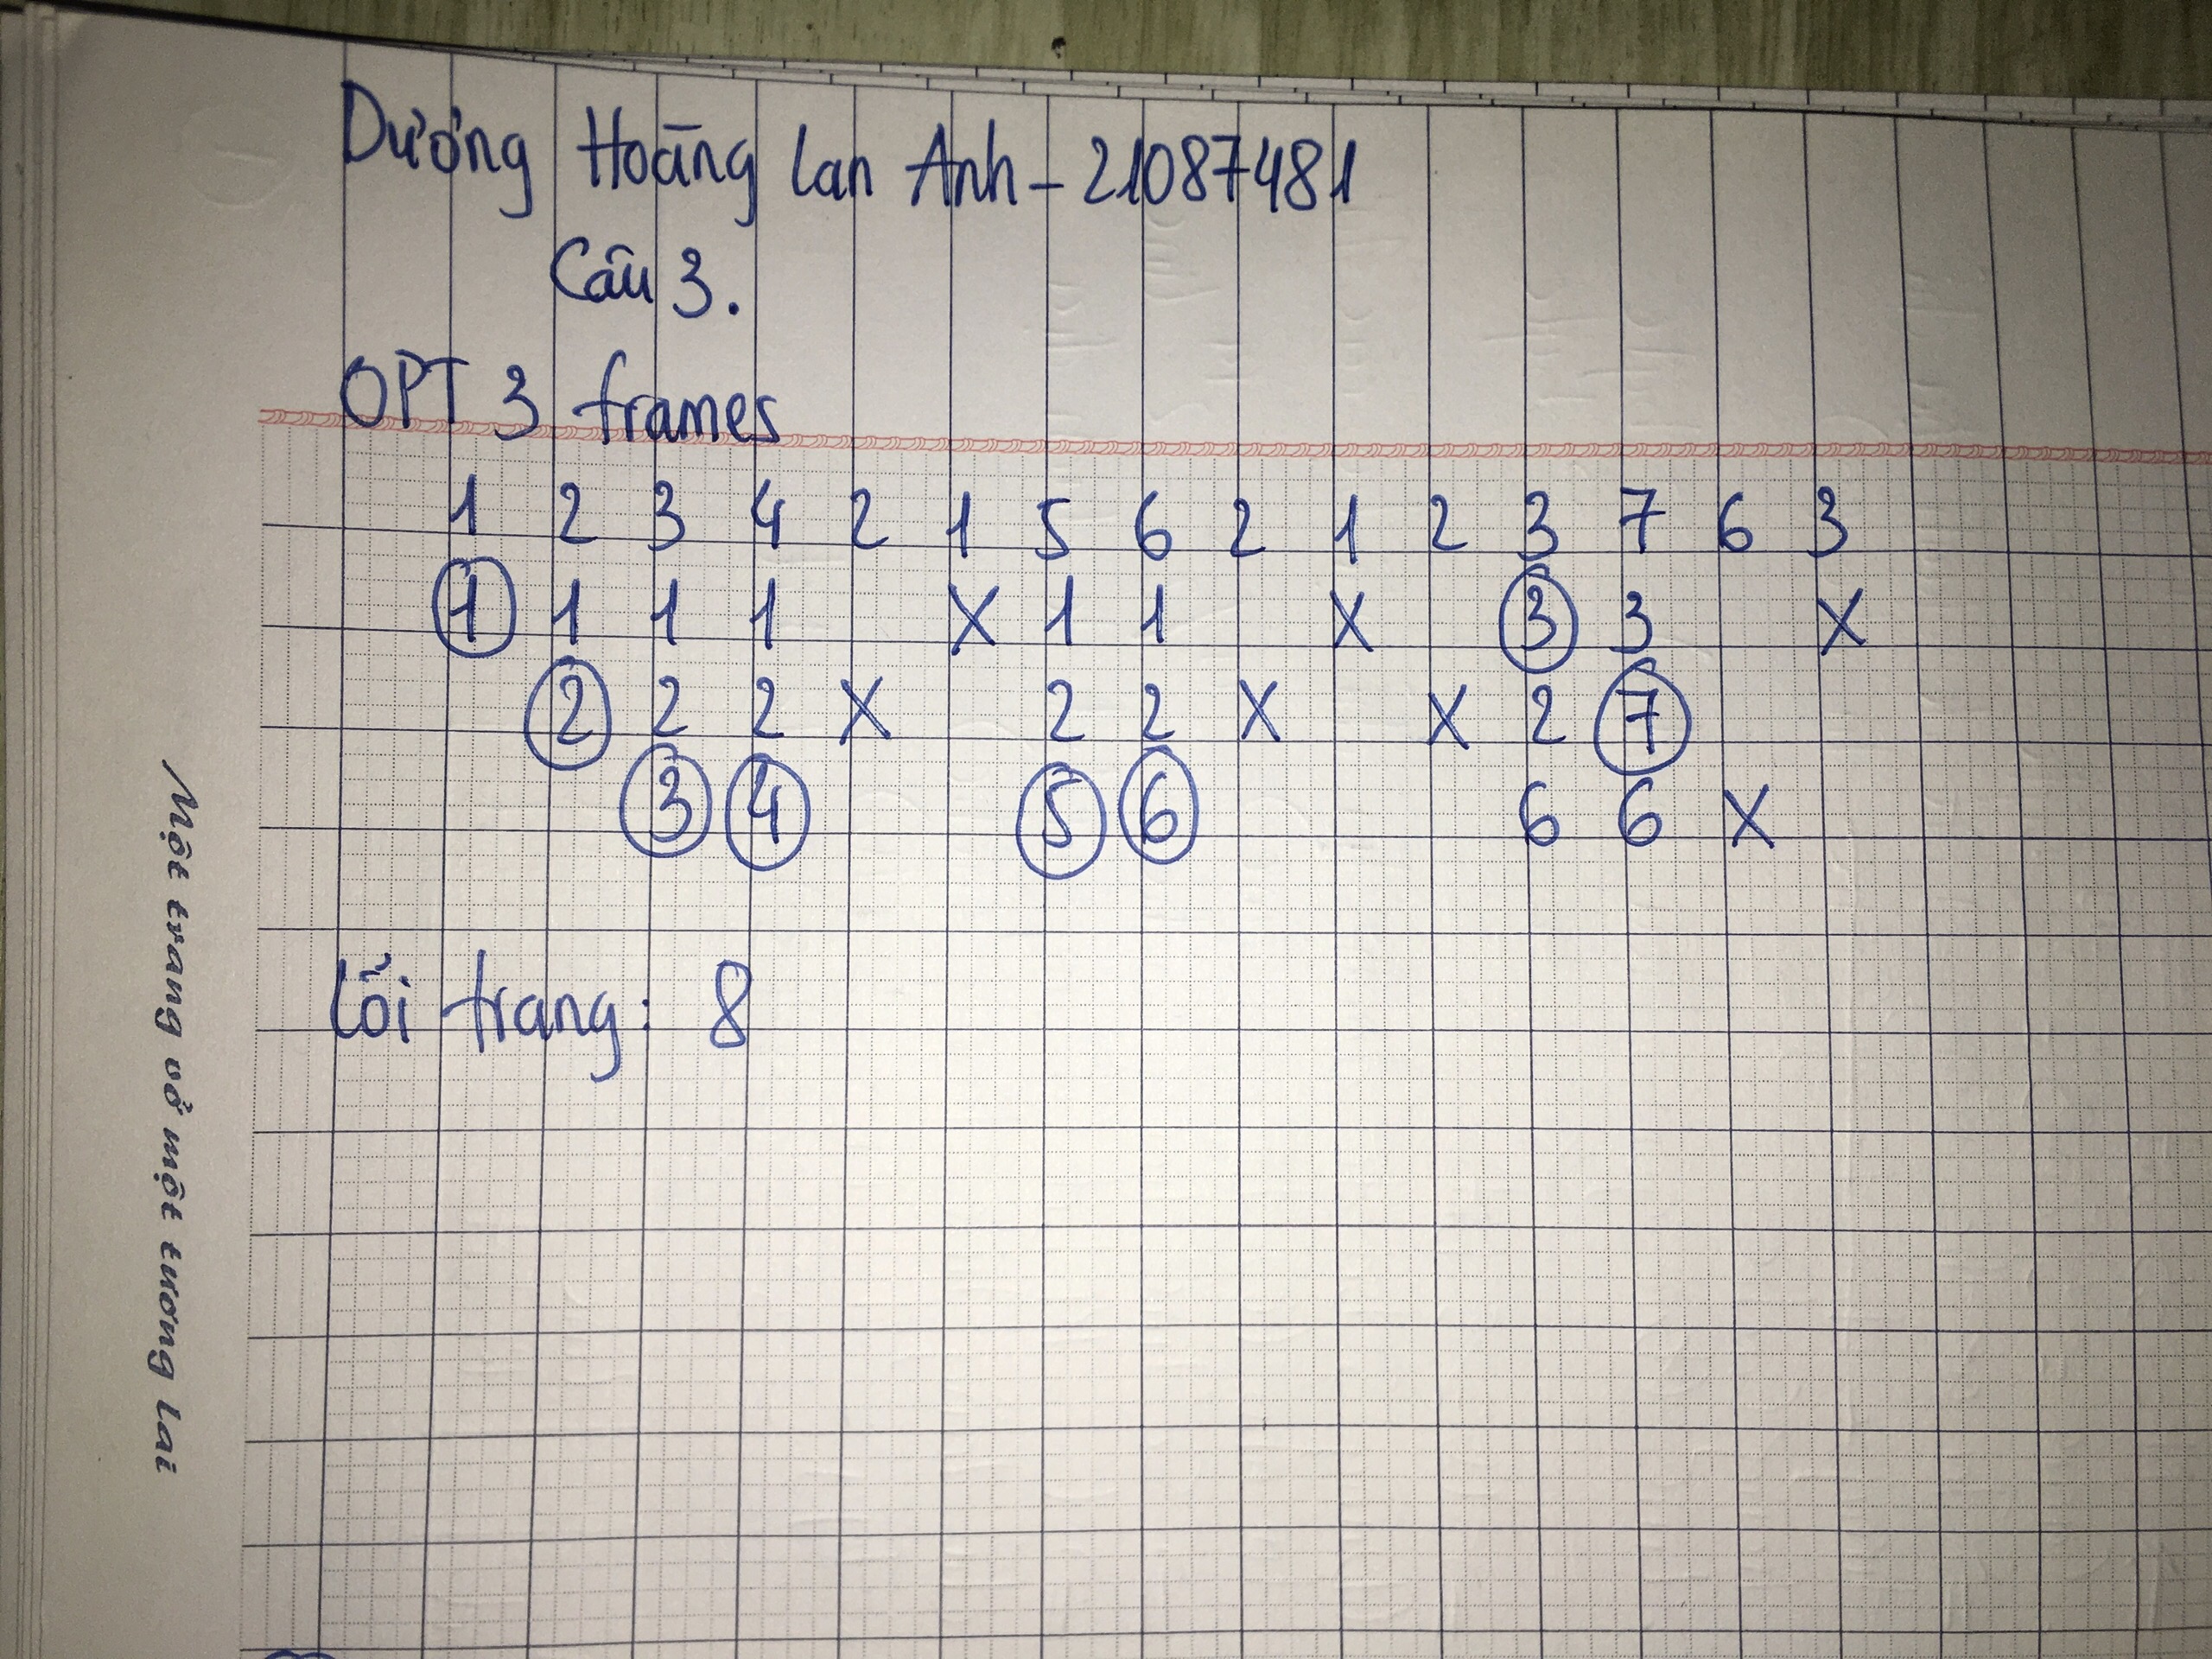 Dương Hoàng Lan Anh - 21087481
Câu 3.
OPT 3 frames
1 2 3 4 2 1 5 6 2 1 2 3 7 6 3
1 1 1 1 X 1 1 X 3 3 X
2 2 2 X 2 2 X X 2 7
3 4 5 6 6 6 X
lỗi trang: 8
Một trang vở một tương lai